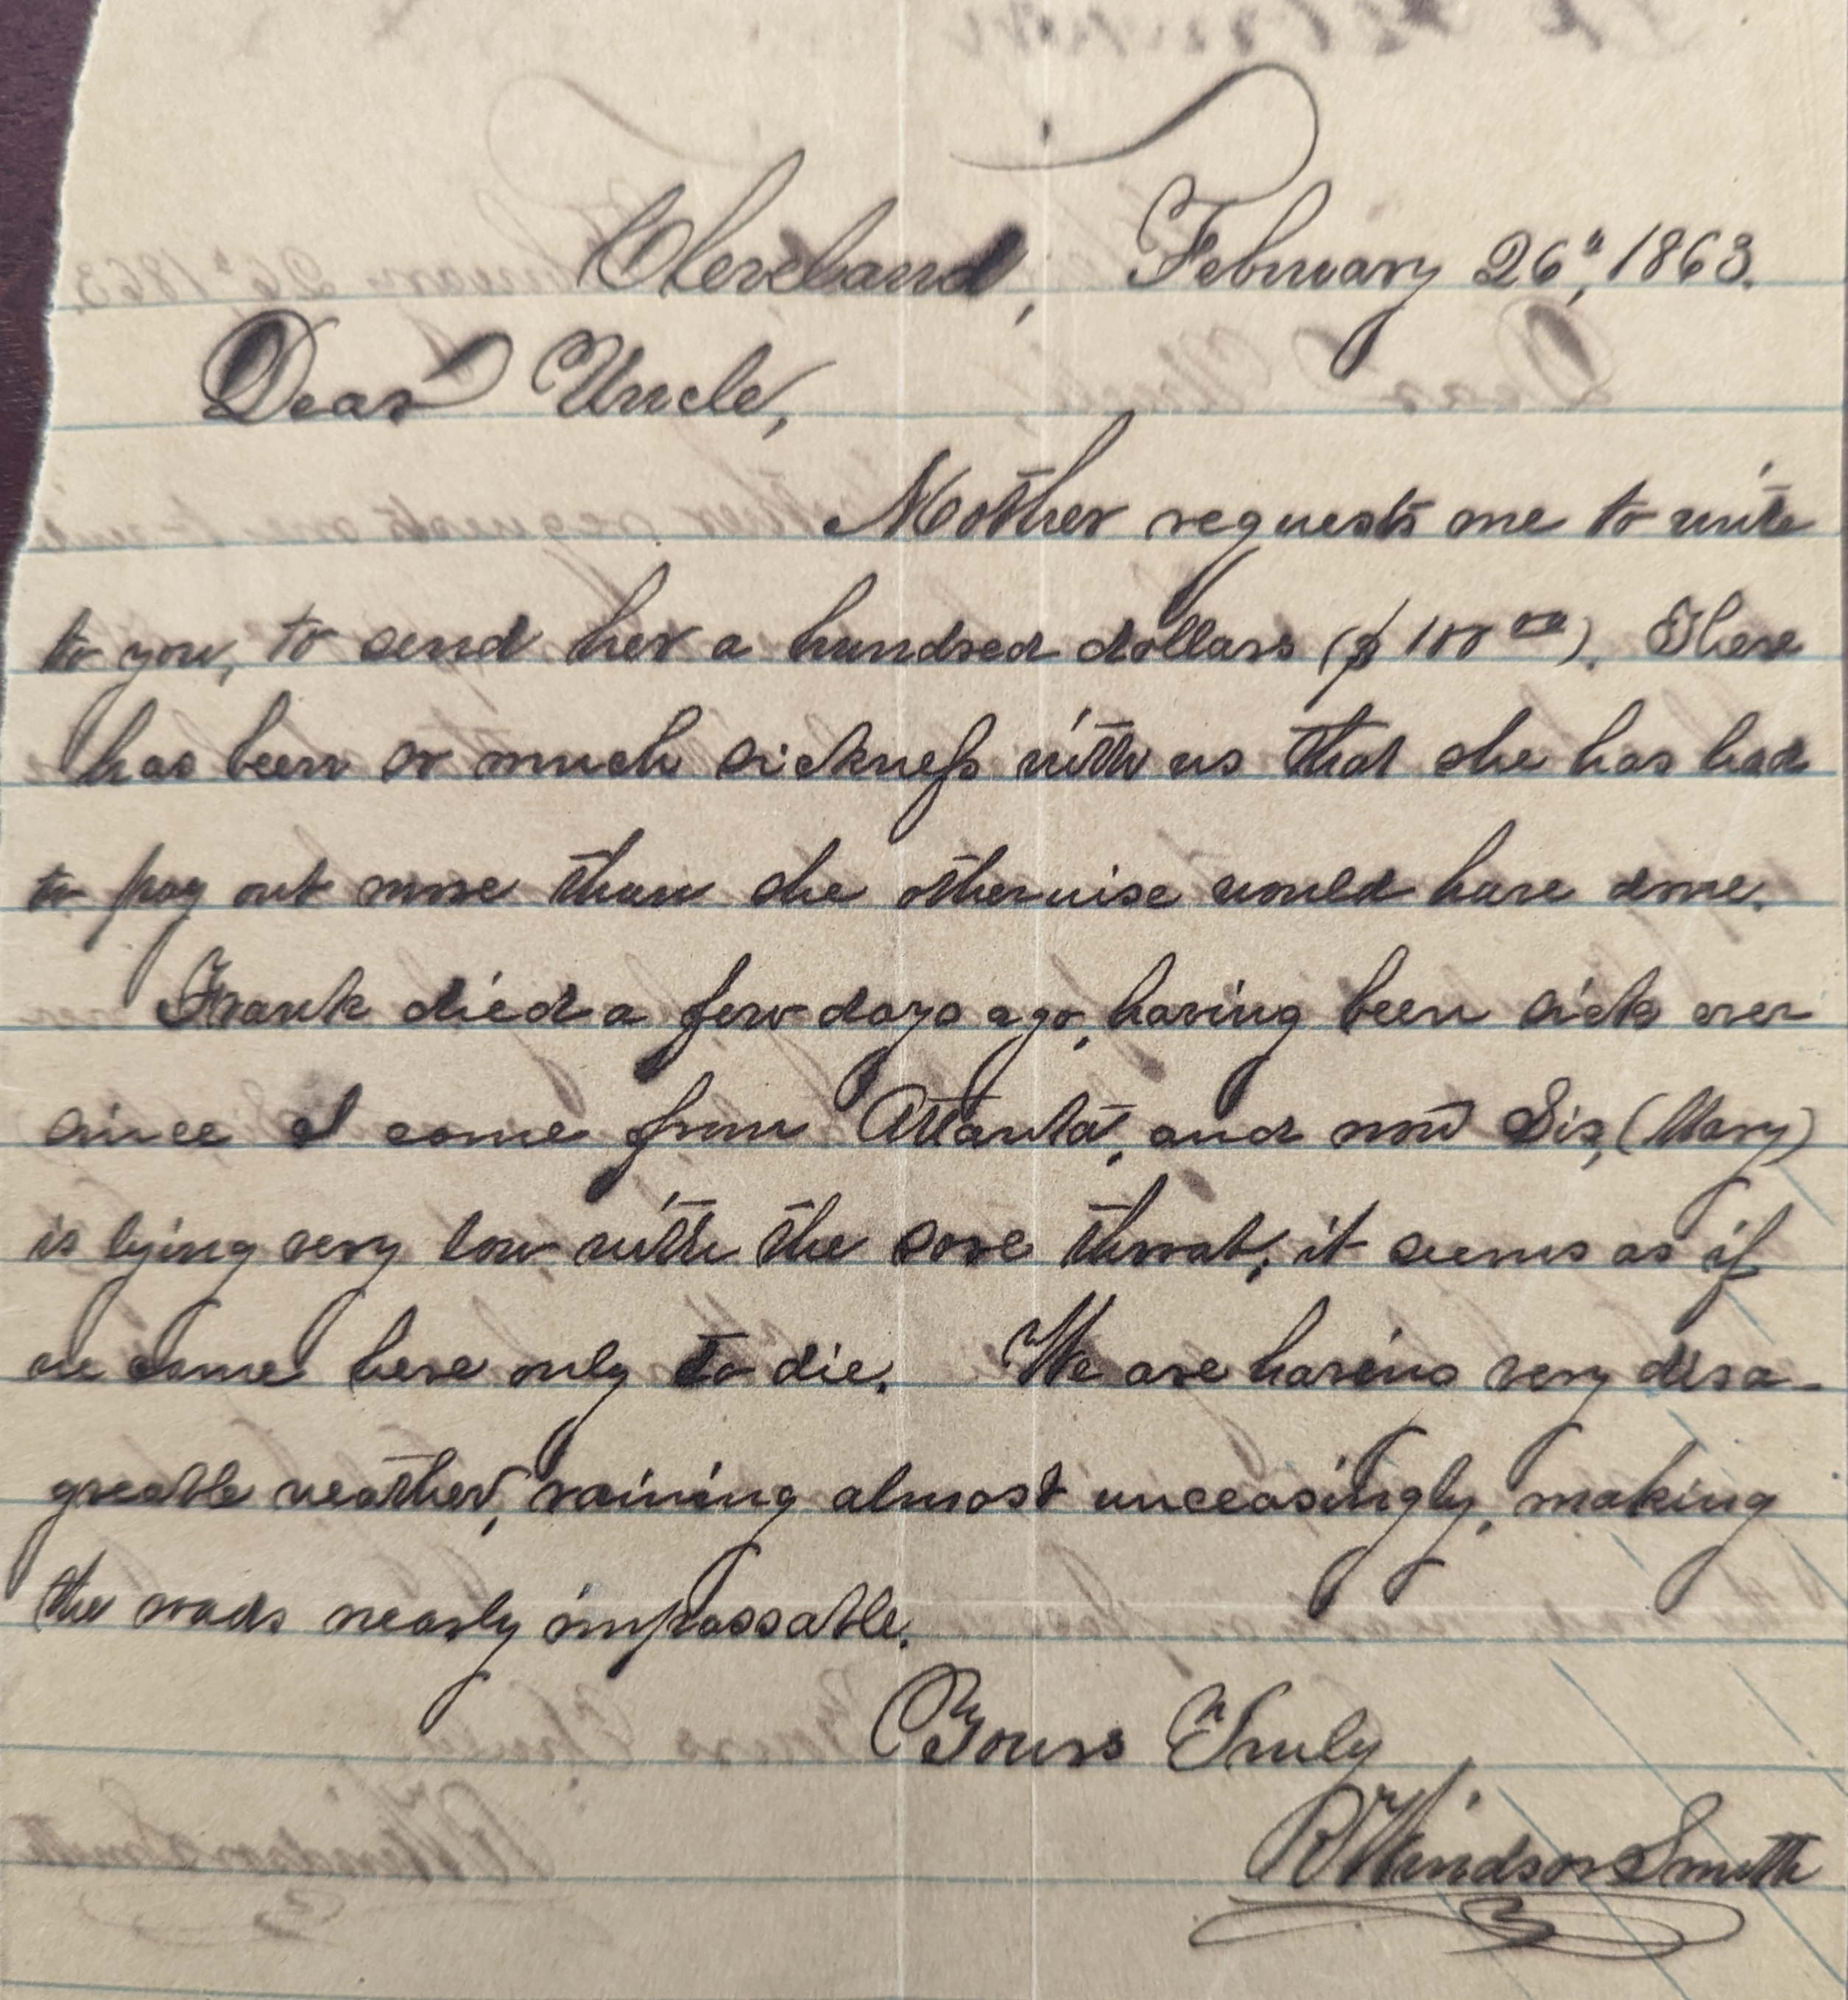 Cleveland, February 26", 1863.
Dear Uncle,
Mother requests me to write
to you, to send her a hundred dollars ($100 00). There
has been so much sickness with us that she has had
to pay out more than she otherwise would have done.
Frank died a few days ago, having been sick ever
since I come from Atlanta, and now Sis, (Mary)
is lying very low with the sore throat; it seems as if
we come here only to die. We are having very disa-
greable weather, raining almost unceasingly, making
the roads nearly impassable.
Yours Truly
R Windsor Smith